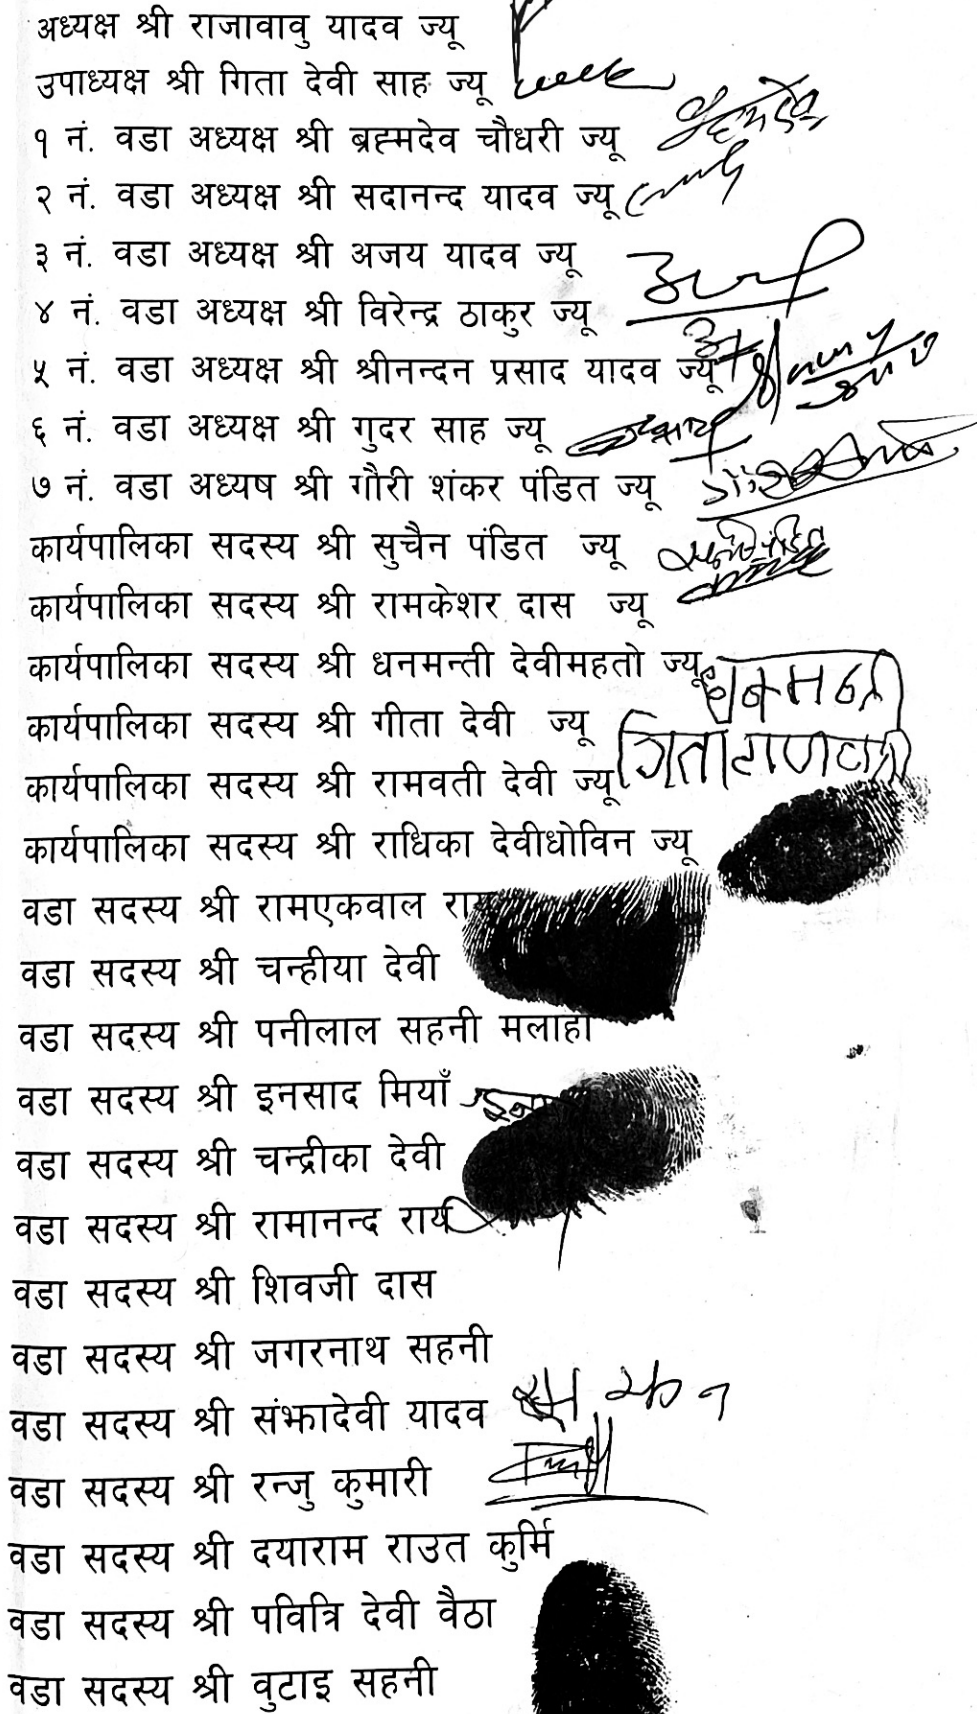 अध्यक्ष श्री राजावावु यादव ज्यू
उपाध्यक्ष श्री गिता देवी साह ज्यू
१ नं. वडा अध्यक्ष श्री ब्रह्मदेव चौधरी ज्यू
२ नं. वडा अध्यक्ष श्री सदानन्द यादव ज्यू
३ नं. वडा अध्यक्ष श्री अजय यादव ज्यू
४ नं. वडा अध्यक्ष श्री विरेन्द्र ठाकुर ज्यू
५ नं. वडा अध्यक्ष श्री श्रीनन्दन प्रसाद यादव ज्यू
६ नं. वडा अध्यक्ष श्री गुदर साह ज्यू
७ नं. वडा अध्यष श्री गौरी शंकर पंडित ज्यू
कार्यपालिका सदस्य श्री सुचैन पंडित ज्यू
कार्यपालिका सदस्य श्री रामकेशर दास ज्यू
कार्यपालिका सदस्य श्री धनमन्ती देवीमहतो ज्यू
कार्यपालिका सदस्य श्री गीता देवी ज्यू
कार्यपालिका सदस्य श्री रामवती देवी ज्यू
कार्यपालिका सदस्य श्री राधिका देवीधोविन ज्यू
वडा सदस्य श्री रामएकवाल राय
वडा सदस्य श्री चन्हीया देवी
वडा सदस्य श्री पनीलाल सहनी मलाहा
वडा सदस्य श्री इनसाद मियाँ
वडा सदस्य श्री चन्द्रीका देवी
वडा सदस्य श्री रामानन्द राय
वडा सदस्य श्री शिवजी दास
वडा सदस्य श्री जगरनाथ सहनी
वडा सदस्य श्री संझादेवी यादव
वडा सदस्य श्री रन्जु कुमारी
वडा सदस्य श्री दयाराम राउत कुर्मि
वडा सदस्य श्री पवित्रि देवी वैठा
वडा सदस्य श्री वुटाइ सहनी